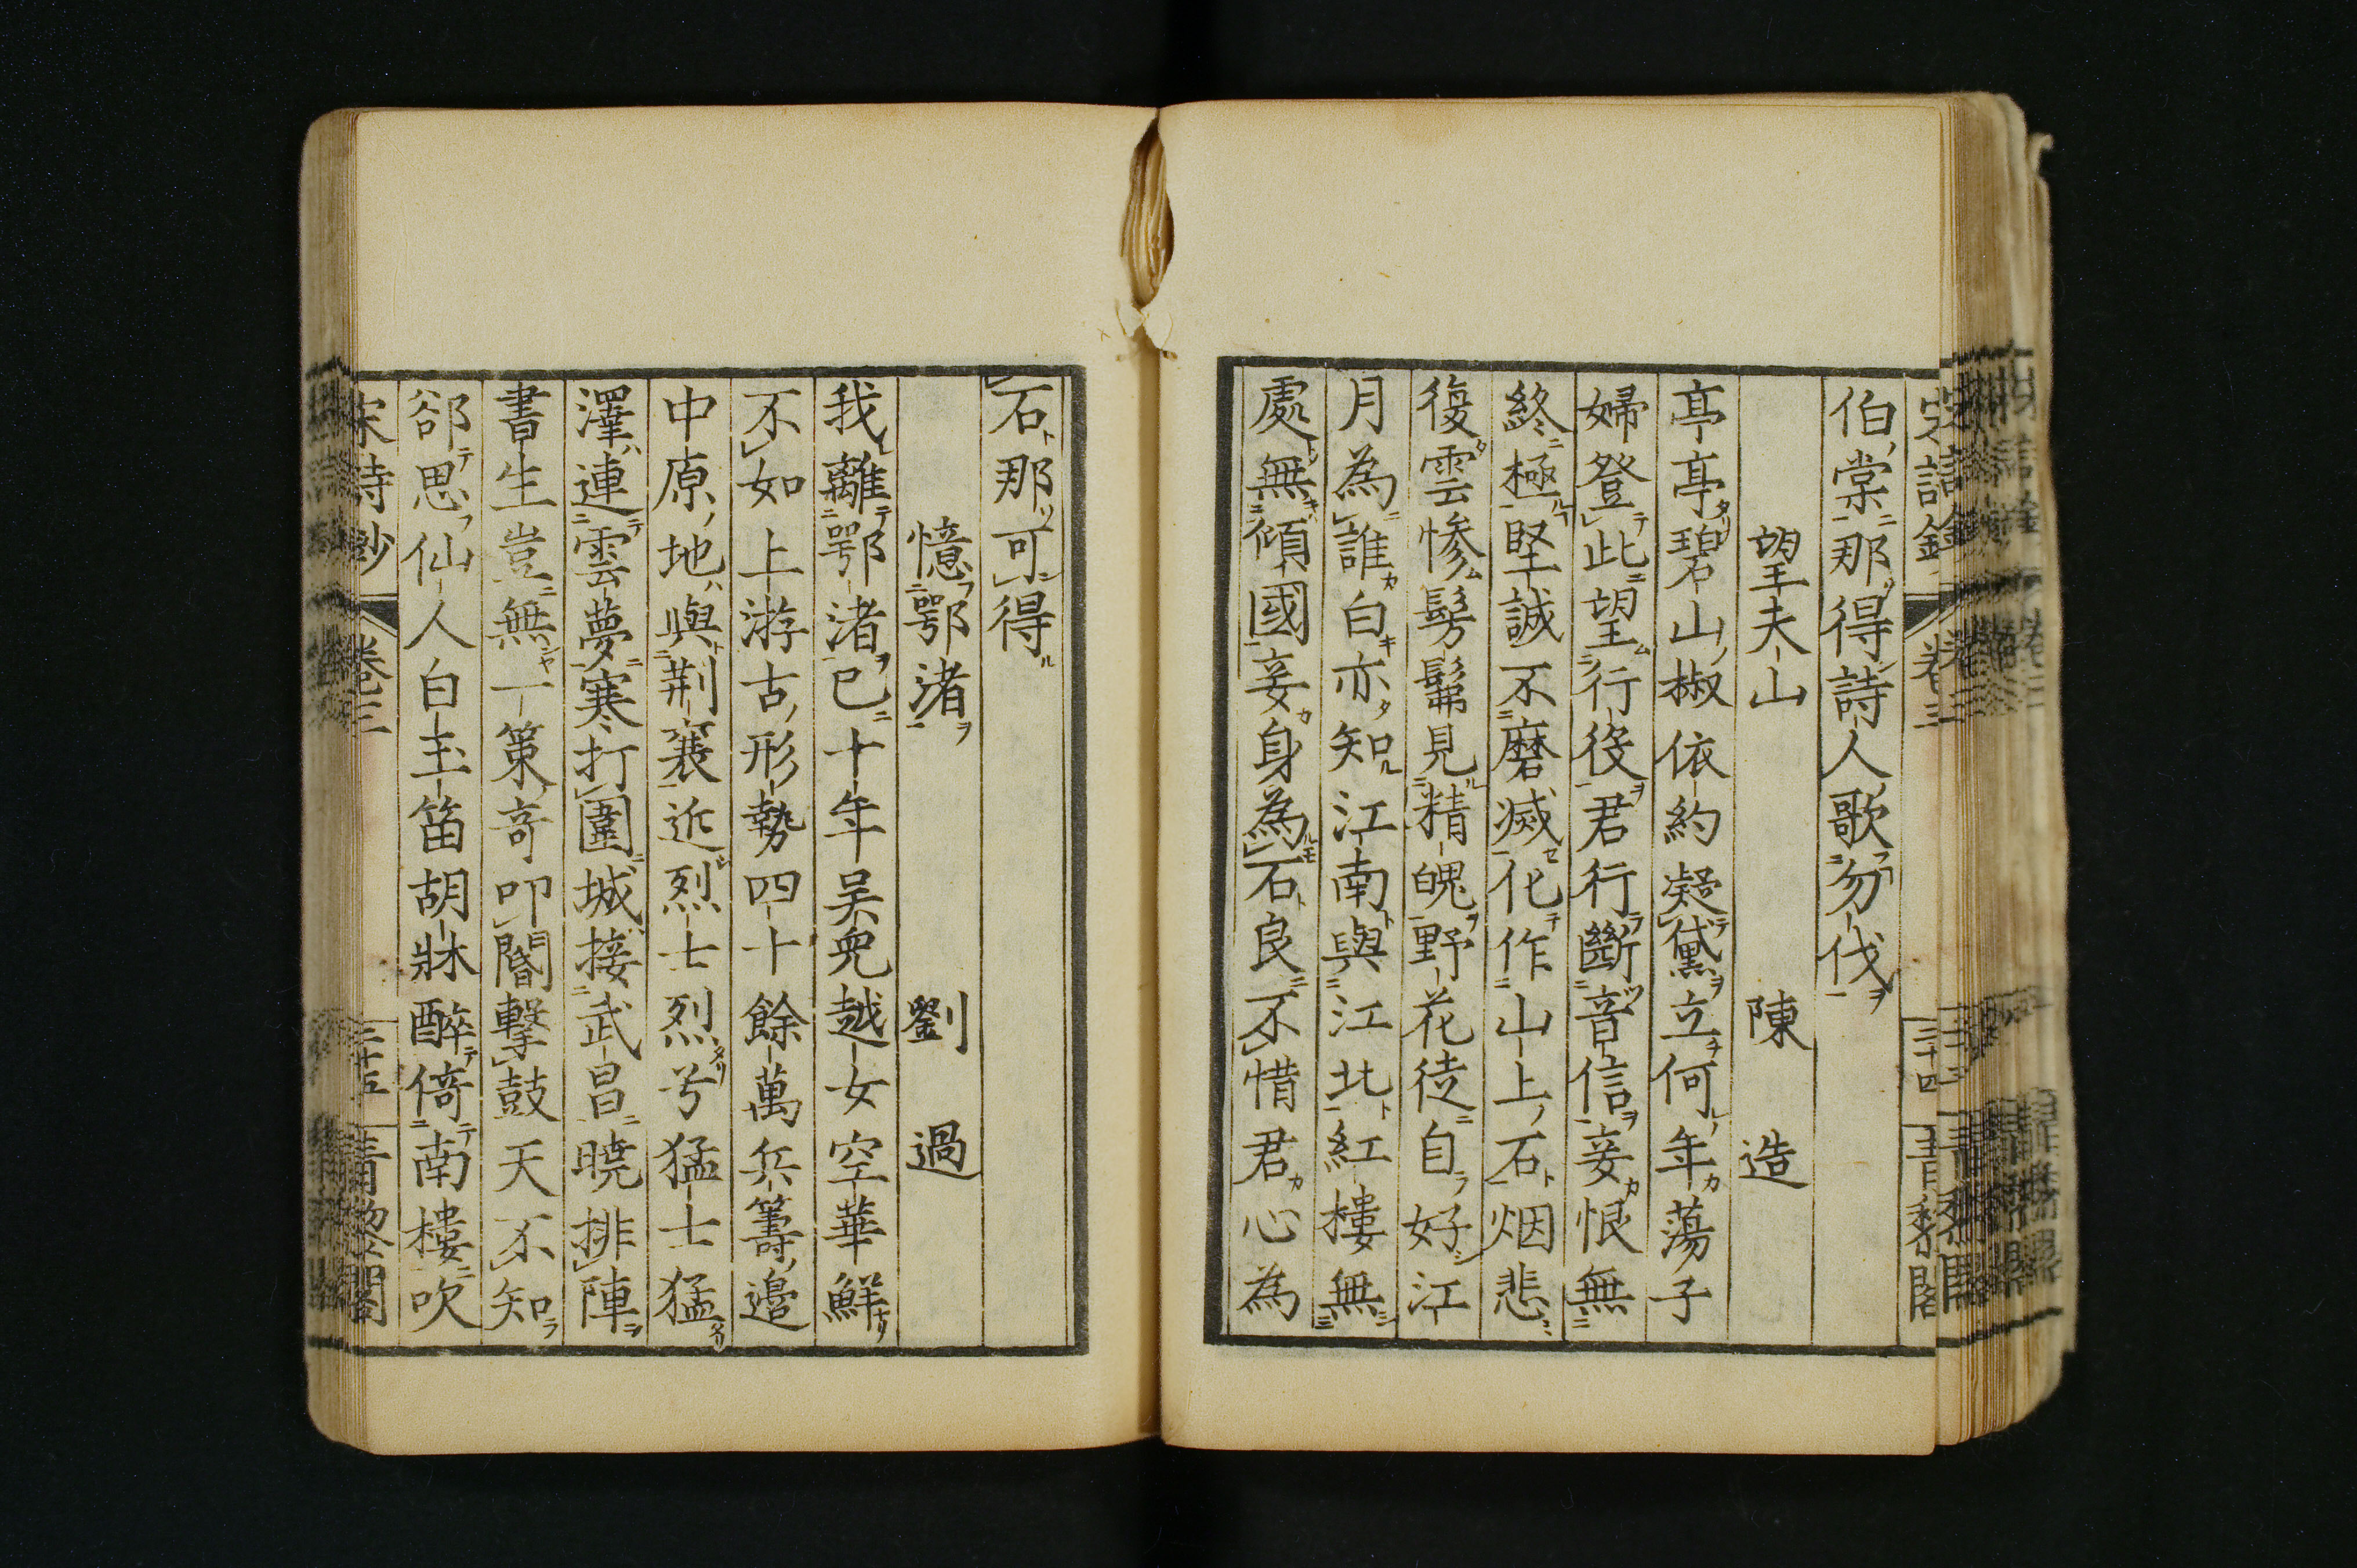 伯棠那得詩人歌勿伐
望夫山 陳造
亭亭碧山椒依約凝黛立何年蕩子
婦登此望行役君行斷音信妾恨無
終極堅誠不磨滅化作山上石烟悲
復雲慘髣髴見精魄野花徒自好江
月為誰白亦知江南與江北紅樓無
處無傾國妾身為石良不惜君心為
石那可得
憶鄂渚 劉過
我離鄂渚已十年吴兒越女空華鮮
不如上游古形勢四十餘萬兵籌邊
中原地與荆襄近烈士烈兮猛士猛
澤連雲夢寒打圍城接武昌曉排陣
書生豈無一策奇叩閽擊鼓天不知
卻思仙人白玉笛胡牀醉倚南樓吹
宋詩鈔 卷三 三十五 青藜閣